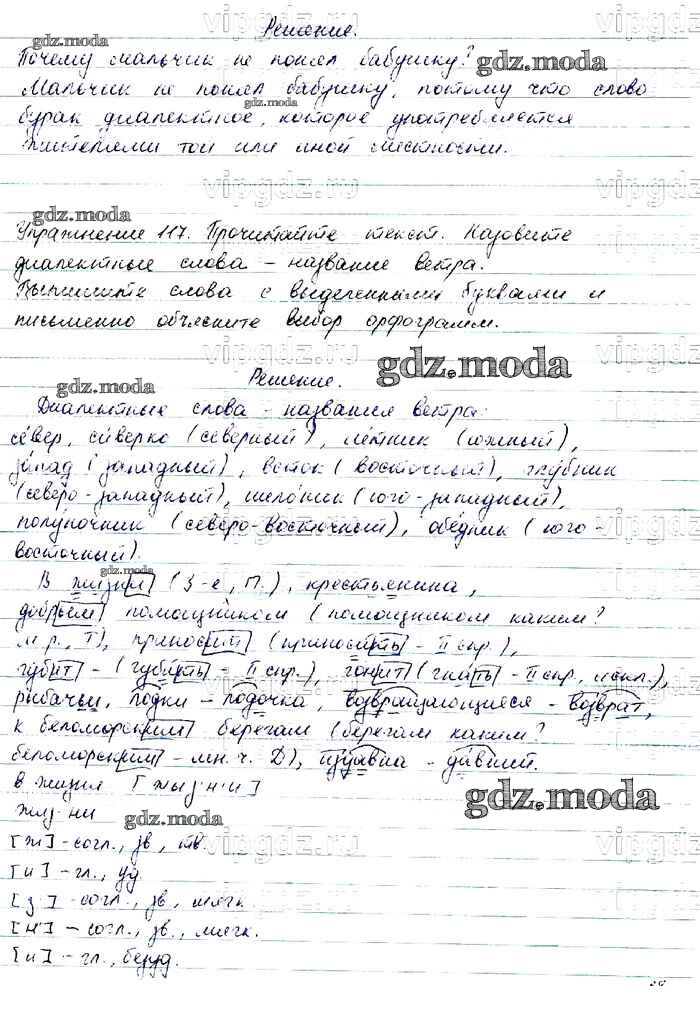 Решение.
gdz.moda
Почему мальчик не понял бабушку?
gdz.moda
Мальчик не понял бабушку, потому что слово
gdz.moda
бурак диалектное, которое употребляется
жителями той или иной местности.
vipgdz.ru
gdz.moda
Упражнение 117. Прочитайте текст. Назовите
диалектные слова – название ветра.
Выпишите слова с выделенными буквами и
письменно объясните выбор орфограмм.
gdz.moda
gdz.moda
Решение.
Диалектные слова – названия ветра:
се́вер, си́верко (северный), ле́тник (южный),
за́пад (западный), восток (восточный), глу́бник
(северо-западный), шело́ник (юго-западный),
полу́ночник (северо-восточный), обе́дник (юго-
восточный).
gdz.moda
В жизни (3-е, П.), крестьянина,
добрым помощником (помощником каким?
м.р., Т), приносит (приносить – II спр.),
губит – (губить – II спр.), гонит (гнать – II спр., искл.),
рыбачьи, лодки – лодочка, возвращающиеся – возврат,
к беломорским берегам (берегам каким?
беломорским – мн. ч. Д), издавна – давний.
в жизни [жыз'н'и]
gdz.moda
жиз-ни
gdz.moda
[ж] – согл., зв., тв.
[и] – гл., уд.
[з'] – согл., зв., мягк.
[н'] – согл., зв., мягк.
[и] – гл., безуд.